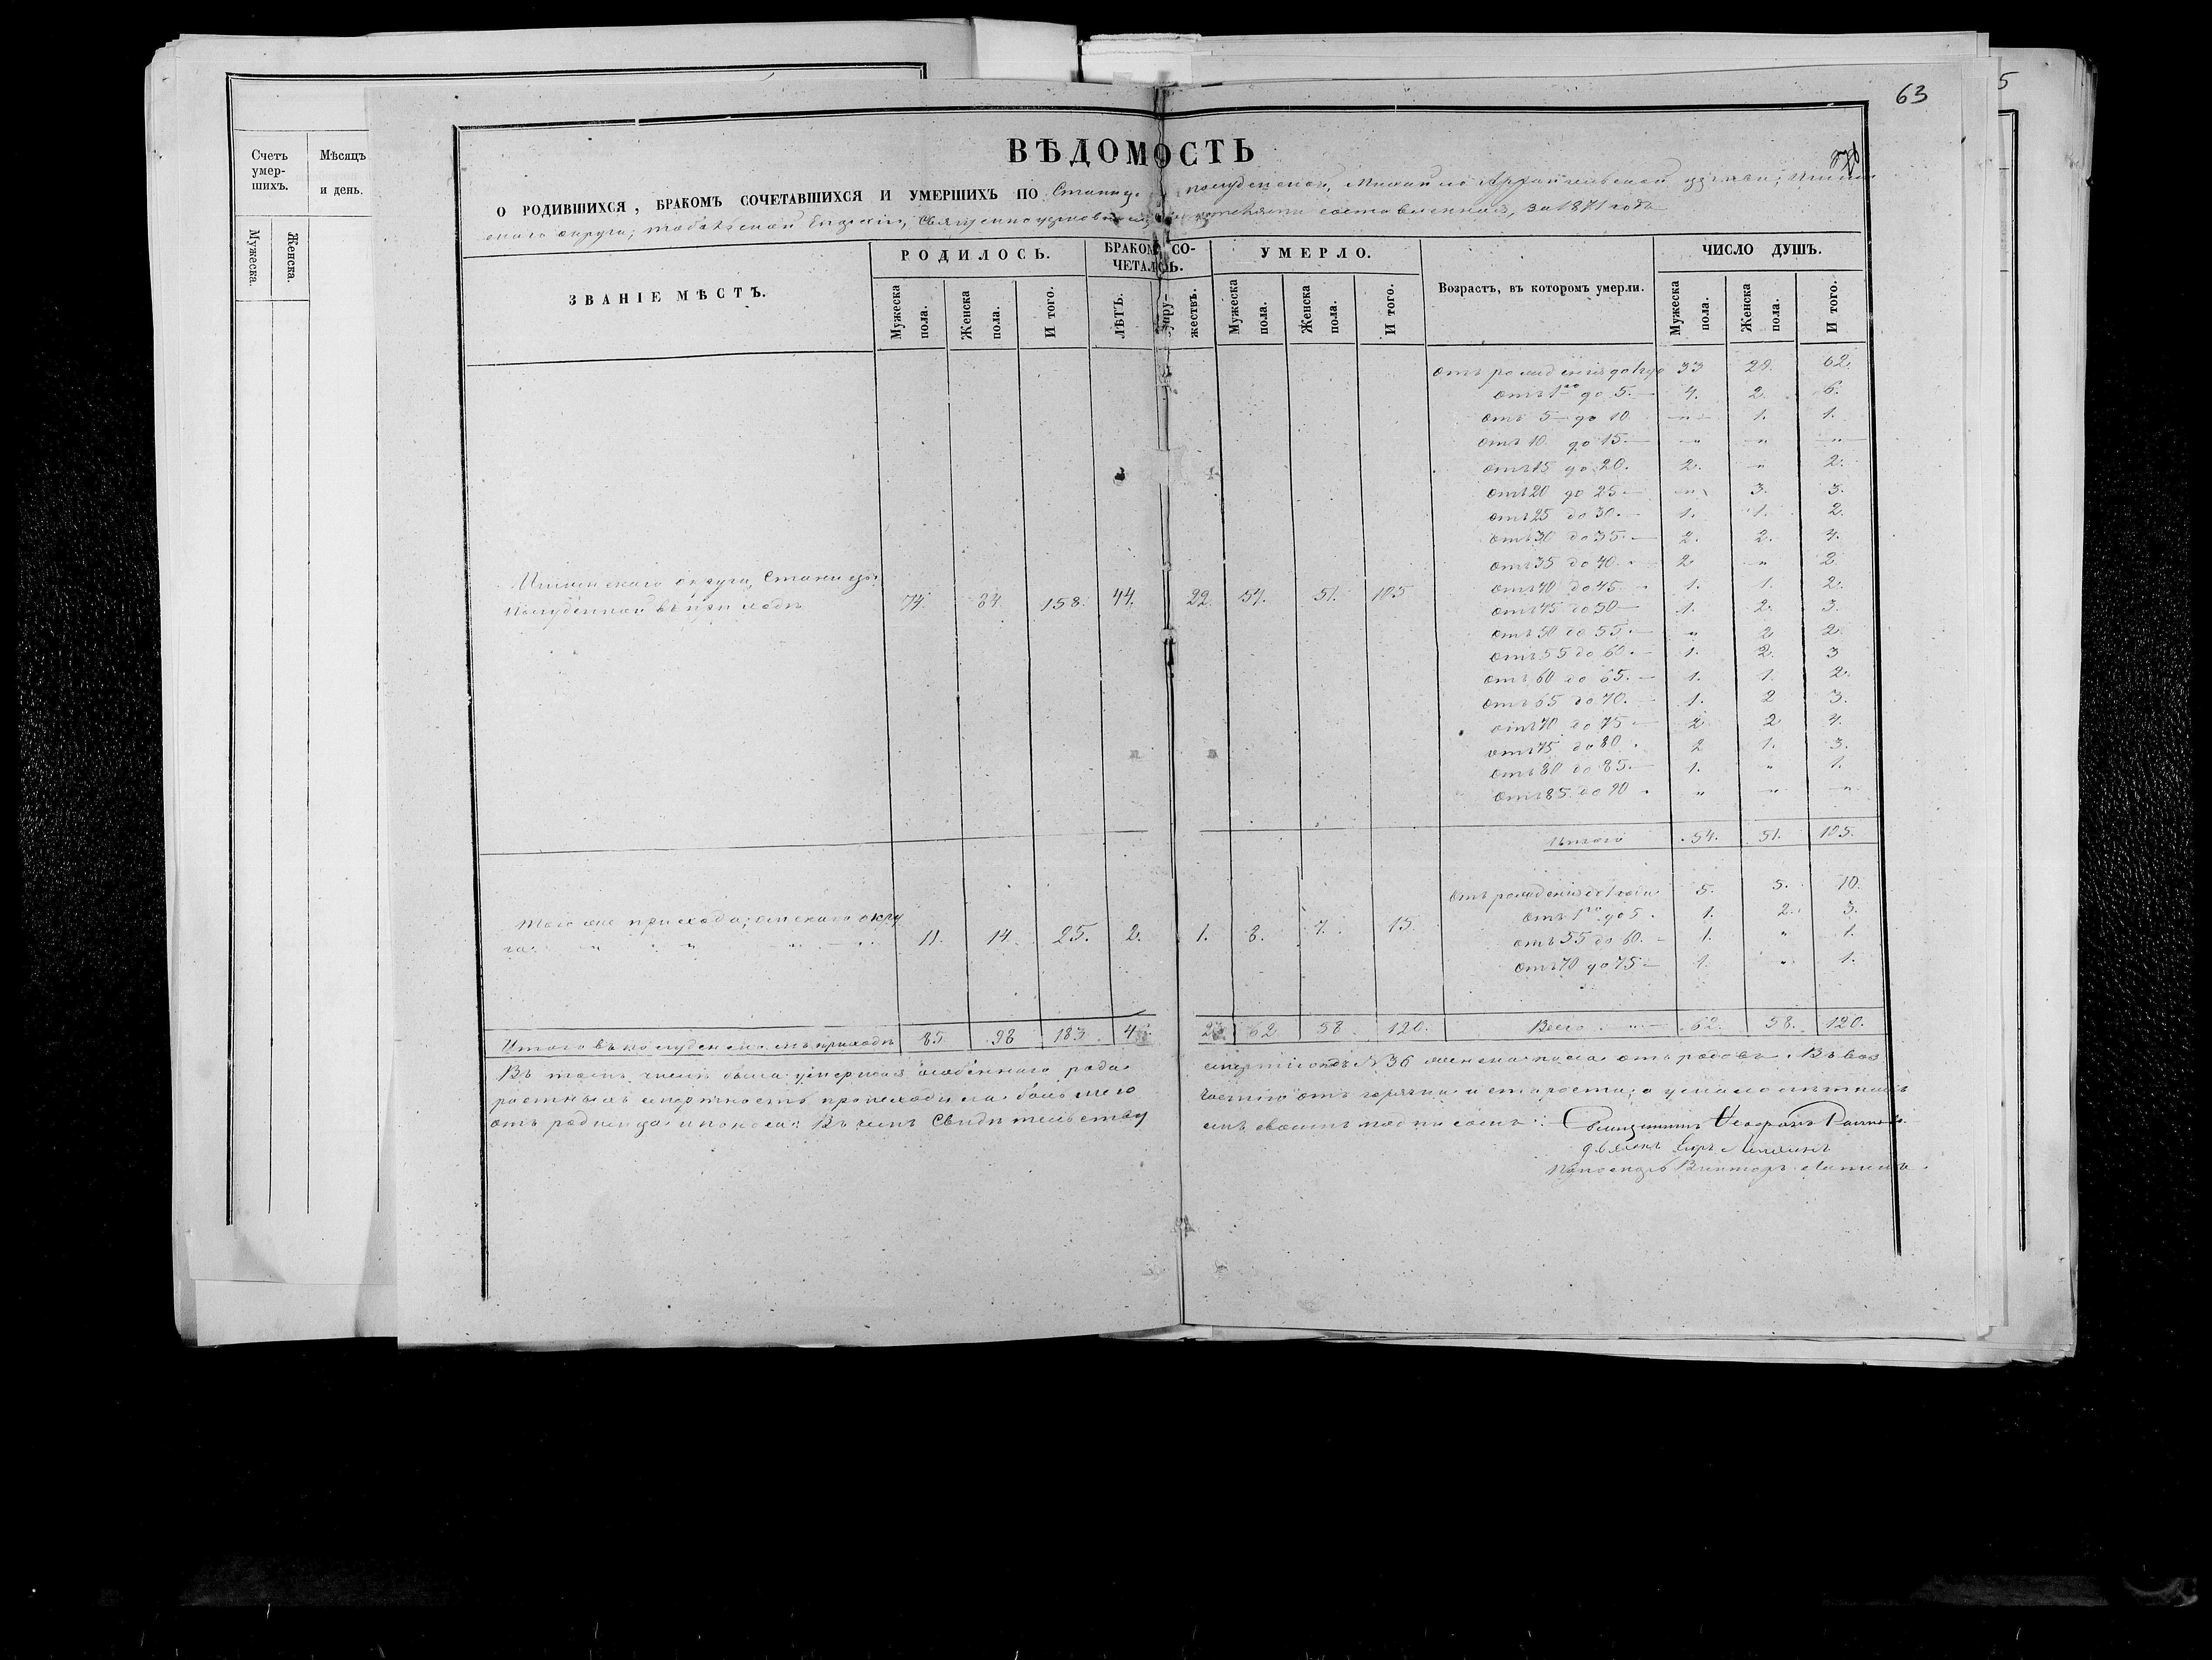 63
5
Счетъ
умер-
шихъ.
Мѣсяцъ
и день.
Мужеска.
Женска.
ВѢДОМОСТЬ
О РОДИВШИХСЯ, БРАКОМЪ СОЧЕТАВШИХСЯ И УМЕРШИХЪ ПО Станицѣ Полуденской, Михайло Архангельской церкви; Ишим
скаго округа; Тобольской Епархіи, Священноцерковно составленная, за 1871 годъ
ЗВАНІЕ МѢСТЪ.
РОДИЛОСЬ.
БРАКОМЪ СО-
ЧЕТАЛОСЬ.
УМЕРЛО.
Возрастъ, въ которомъ умерли.
ЧИСЛО ДУШЪ.
Мужеска пола.
Женска пола.
И того.
ЛѢТЪ.
Супру-
жествъ.
Мужеска пола.
Женска пола.
И того.
Мужеска пола.
Женска пола.
И того.
отъ рожденія до 1 го 33 29. 62.
отъ 1го до 5. — 4. 2. 6.
отъ 5 — до 10 — „ — 1. 1.
отъ 10 до 15. — „ „ — „ —
отъ 15 до 20. 2. „ 2.
отъ 20 до 25 — „ 3. 3.
отъ 25 до 30. — 1. 1. 2.
отъ 30 до 35. — 2. 2. 4.
отъ 35 до 40. 2 „ 2.
Ишимскаго округа, Станицы
Полуденной въ приходѣ 74. 84. 158. 44. 22. 54. 51. 105
отъ 40 до 45 — 1. 1. 2.
отъ 45 до 50 — 1. 2. 3.
отъ 50 до 55. — „ 2 2.
отъ 55 до 60. — 1. 2. 3
отъ 60 до 65. — 1. 1. 2.
отъ 65 до 70. — 1. 2 3.
отъ 70 до 75 — 2. 2 4.
отъ 75 до 80. 2 1. 3.
отъ 80 до 85. — 1. „ 1.
отъ 85. до 90 „ „ „
Итого 54. 51. 105.
отъ рожденія до 1 года 5. 5. 10.
отъ 1го до 5. 1. 2. 3.
Того же прихода; Омскаго окру
га. „ „ „ 11. 14. 25. 2. 1. 8. 7. 15.
отъ 55 до 60. — 1. „ 1.
отъ 70 до 75 — 1. „ 1.
Итого въ Полуденскомъ приходѣ 85 98 183. 4 23 62 58 120.
Всего 62. 58. 120.
Въ томъ числѣ была умершая особеннаго рода смертію подъ № 36 женска пола отъ родовъ. Въ воз
растныхъ смертность происходила большею частію отъ горячки и старости; а у малолѣтныхъ
отъ родимца и поноса. Въ чемъ Свидѣтельству емъ своимъ подписомъ: Священникъ
Дьяконъ
Виктор